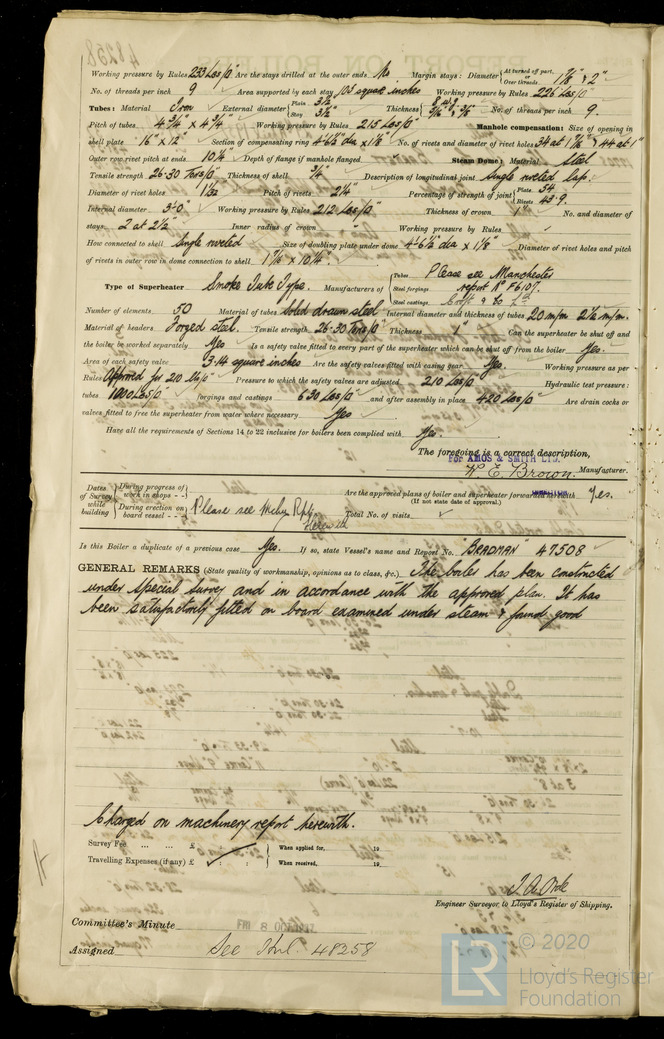 48258
Working pressure by Rules 233 Lbs/□" Are the stays drilled at the outer ends No Margin stays: Diameter { At turned off part, Over threads 1 7/8" & 2"
No. of threads per inch 9 Area supported by each stay square inches Working pressure by Rules 226 Lbs/□"
Tubes: Material Iron External diameter { Plain 3½" Stay 3½" Thickness { No. of threads per inch 9.
Pitch of tubes 4¾" x 4¾" Working pressure by Rules 215 Lbs/□" Manhole compensation: Size of opening in
shell plate 16" x 12" Section of compensating ring 4'-6½" dia x 1 1/8" No. of rivets and diameter of rivet holes 34 at 1 7/16" 44 at 1"
Outer row rivet pitch at ends 10¼ Depth of flange if manhole flanged Steam Dome: Material Steel
Tensile strength 26-30 Tons/□" Thickness of shell ¾" Description of longitudinal joint Single riveted lap.
Diameter of rivet holes 1 1/32 Pitch of rivets 2¼" Percentage of strength of joint { Plate 54. Rivets 43.9.
Internal diameter 3'-0" Working pressure by Rules 212 Lbs/□" Thickness of crown 1" No. and diameter of
stays 2 at 2½" Inner radius of crown " Working pressure by Rules "
How connected to shell Single riveted Size of doubling plate under dome 4'-6½ dia x 1 1/8" Diameter of rivet holes and pitch
of rivets in outer row in dome connection to shell 1 7/16 x 10¼".
Type of Superheater Smoke Tube Type. Manufacturers of { Tubes Please see Manchester
Steel forgings report No F6107.
Steel castings
Number of elements 50 Material of tubes Solid drawn steel Internal diameter and thickness of tubes 20 m/m 2½ m/m.
Material of headers Forged steel. Tensile strength 26-30 Tons/□" Thickness 1" Can the superheater be shut off and
the boiler be worked separately Yes Is a safety valve fitted to every part of the superheater which can be shut off from the boiler Yes.
Area of each safety valve 3.14 square inches Are the safety valves fitted with easing gear Yes. Working pressure as per
Rules Approved for 210 Lbs/□" Pressure to which the safety valves are adjusted 210 Lbs/□" Hydraulic test pressure:
tubes 1000 Lbs/□" forgings and castings 630 Lbs/□" and after assembly in place 420 Lbs/□" Are drain cocks or
valves fitted to free the superheater from water where necessary Yes
Have all the requirements of Sections 14 to 22 inclusive for boilers been complied with Yes.
The foregoing is a correct description,
FOR AMOS & SMITH LTD.
W E. Brown. Manufacturer.
Dates of Survey while building { During progress of work in shops - - } { During erection on board vessel - - - } Please see Mchy Rpt. Herewith
Are the approved plans of boiler and superheater forwarded herewith Yes.
(If not state date of approval.)
Total No. of visits
Is this Boiler a duplicate of a previous case Yes. If so, state Vessel's name and Report No. "BRADMAN" 47508
GENERAL REMARKS (State quality of workmanship, opinions as to class, &c.) The boiler has been constructed
under special survey and in accordance with the approved plan. It has
been satisfactorily fitted on board examined under steam & found good
Charged on machinery report herewith.
Survey Fee ... ... ... £ : : { When applied for, 19
Travelling Expenses (if any) £ : : { When received, 19
Engineer Surveyor to Lloyd's Register of Shipping.
Committee's Minute FRI 8 OCT
Assigned See Hul. 48258
© 2020
LR
Lloyd's Register
Foundation